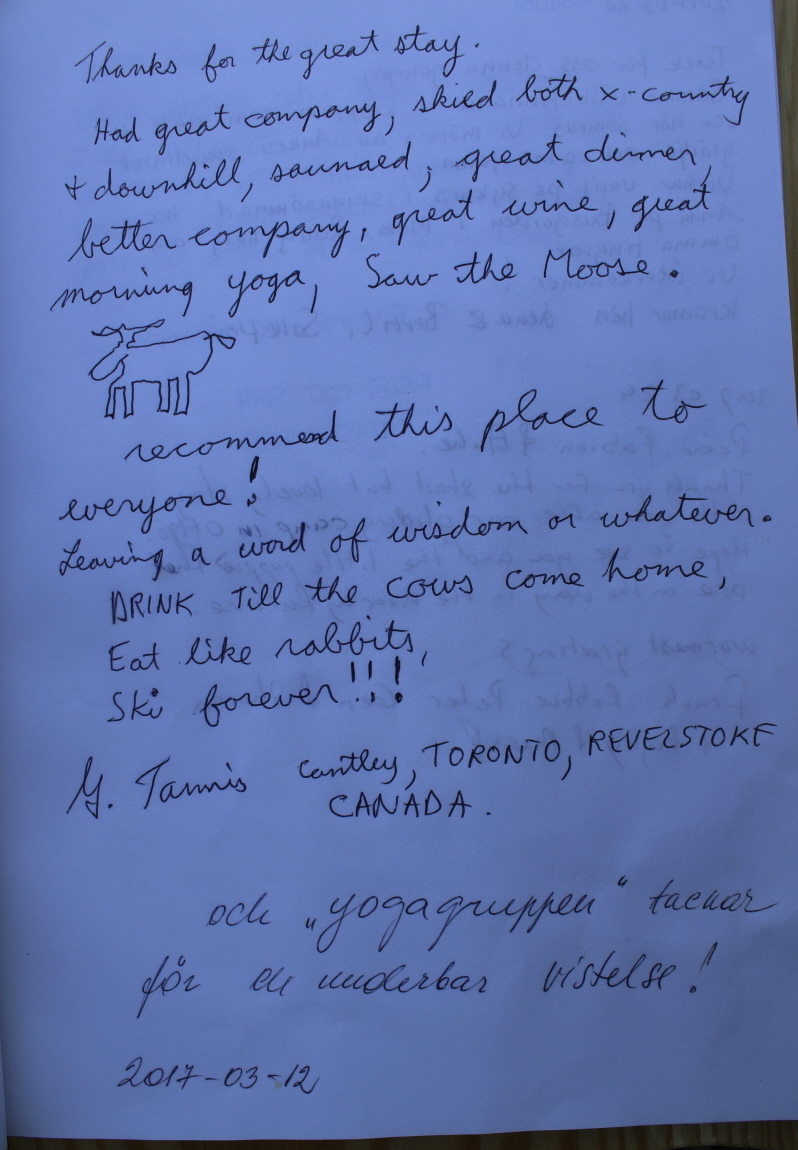 Thanks for the great stay.
Had great company, skied both x-country
+ downhill, saunaed, great dinner,
better company, great wine, great
morning yoga, Saw the Moose.
recommend this place to
everyone!
Leaving a word of wisdom or whatever.
DRINK Till the cows come home,
Eat like rabbits,
Ski forever!!!
G. Tannis Cantley, TORONTO, REVELSTOKE
CANADA.
och „yogagruppen" tackar
för en underbar vistelse!
2017-03-12